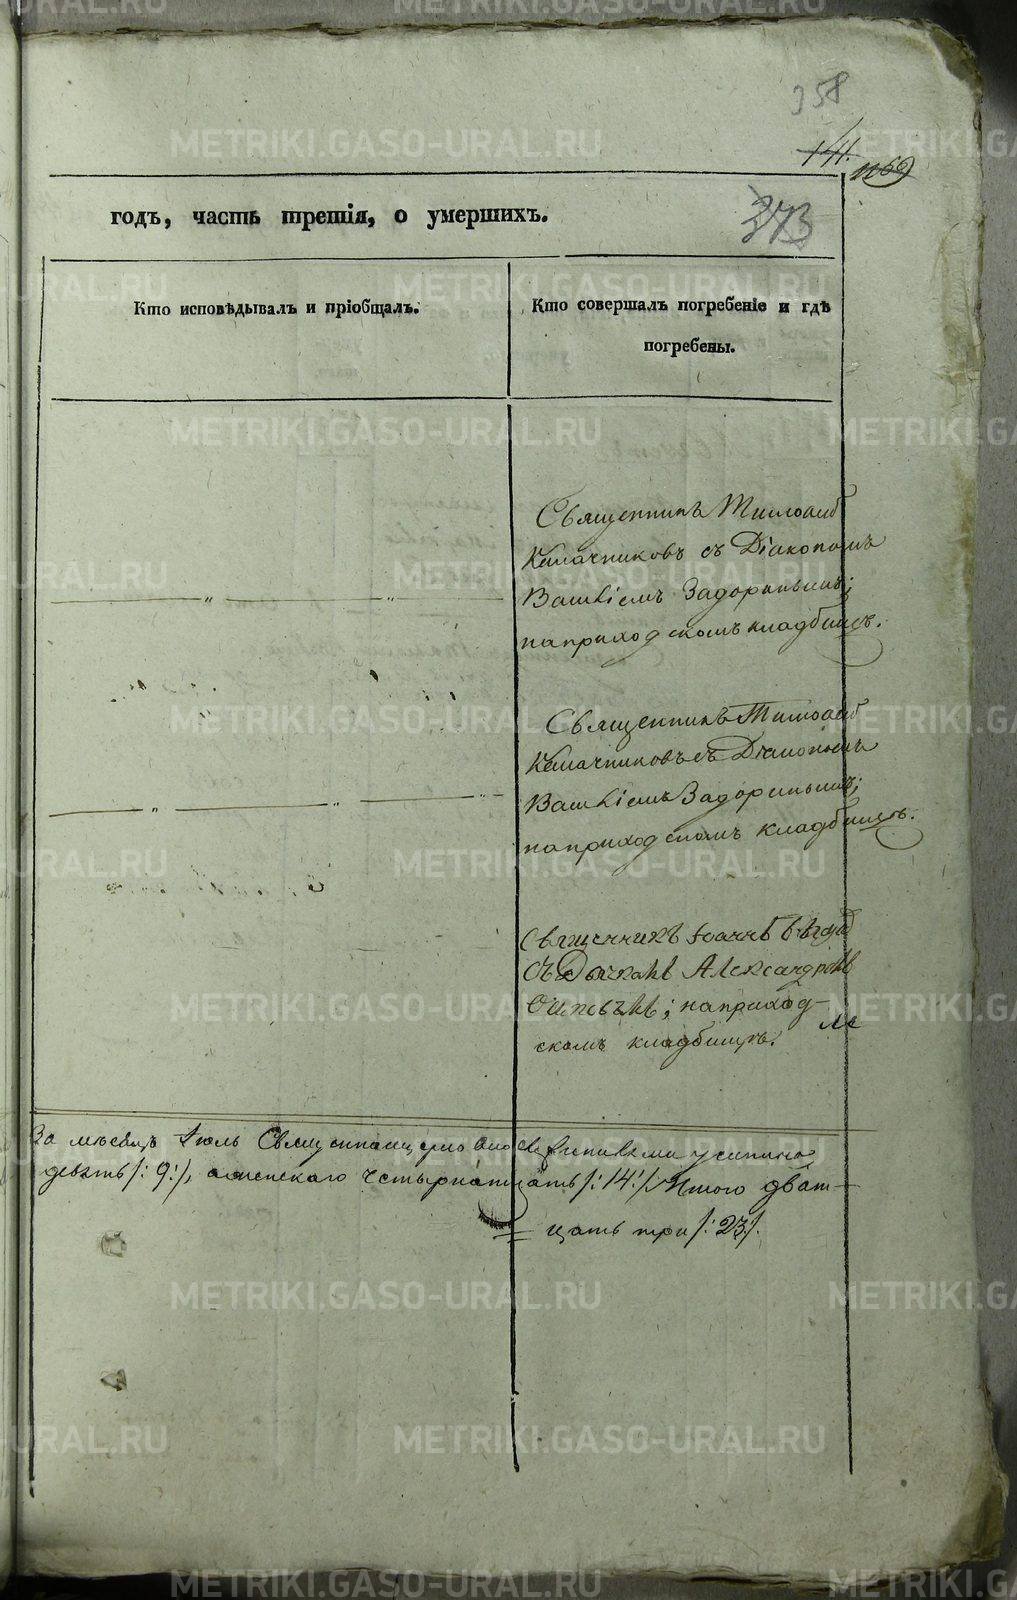 358
141.
1169
373
годъ, часть третія, о умершихъ.
Кто исповѣдывалъ и пріобщалъ.
Кто совершалъ погребеніе и гдѣ
погребены.
Священникъ Тимоѳей
Калачниковъ съ Діакономъ
Задоринымъ;
на приходскомъ кладбищѣ.
Священникъ Тимоѳей
Калачниковъ съ Діакономъ
Задоринымъ;
на приходскомъ кладбищѣ.
Священникъ Іоаннъ
съ Дьячкомъ Александромъ
на приход-
скомъ кладбищѣ.
За мѣсяцъ Іюль
девять /: 9 :/, а женскаго четырнатцать /: 14 :/ Итого дват-
цать три /: 23 /.
METRIKI.GASO-URAL.RU